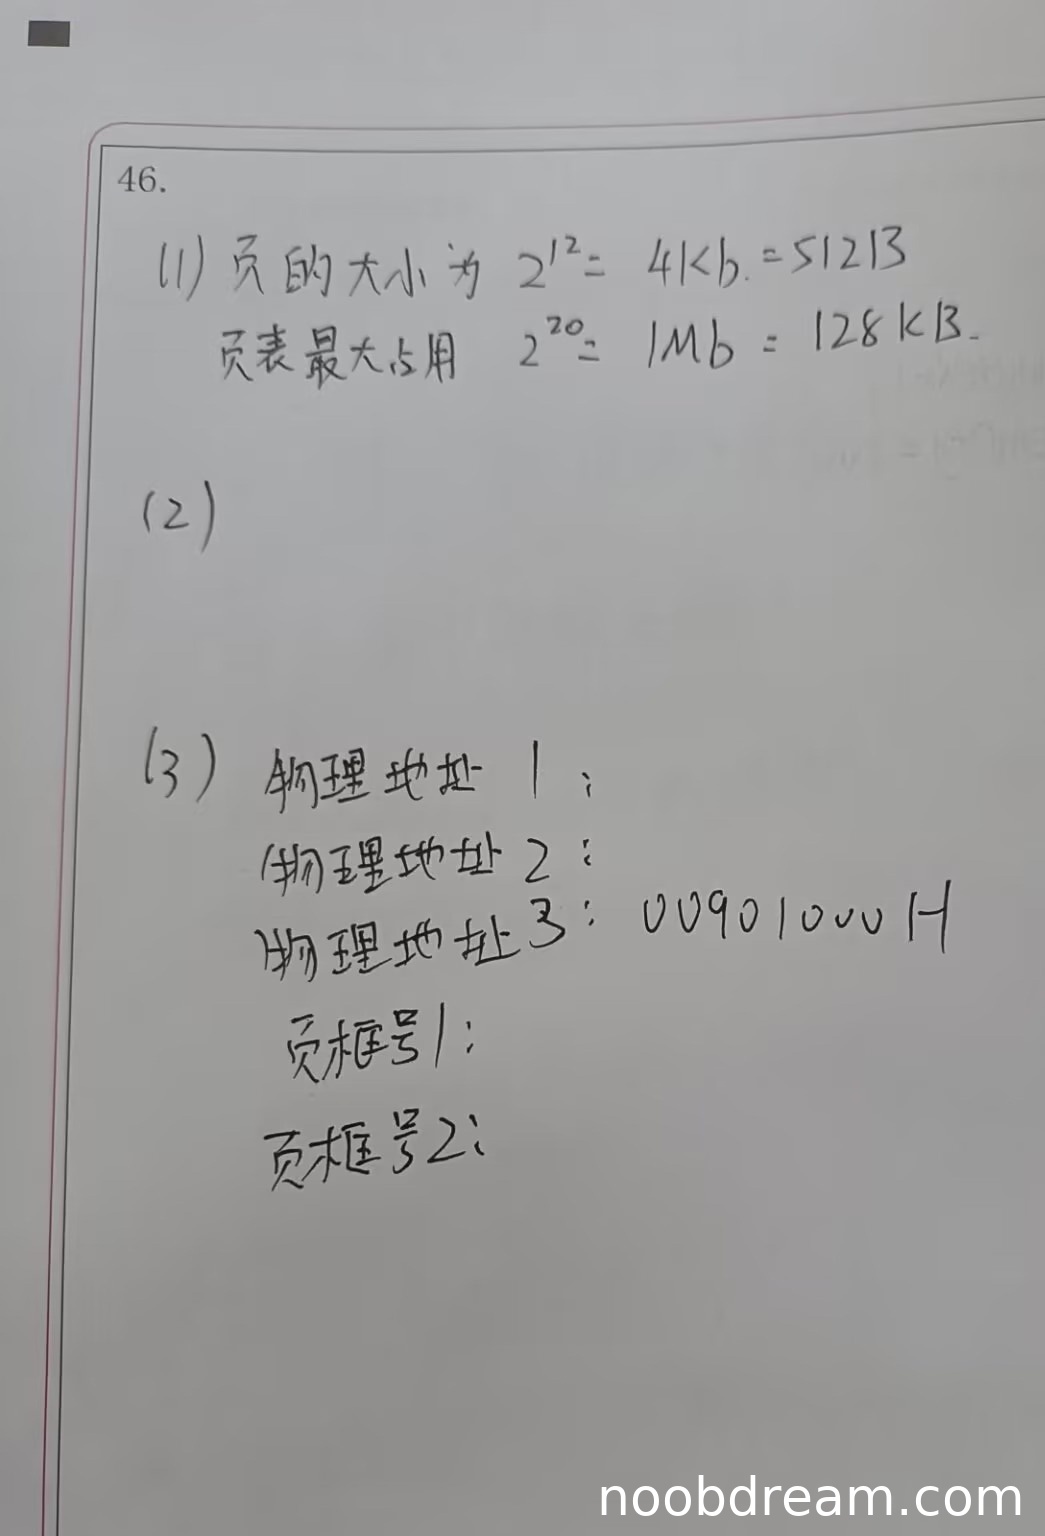 46.
(1) 页的大小为 2^12 = 4Kb. = 512B
页表最大占用 2^20 = 1Mb = 128KB.
(2)
(3) 物理地址 1:
物理地址 2:
物理地址3: 00901000H
页框号1:
页框号2:
noobdream.com